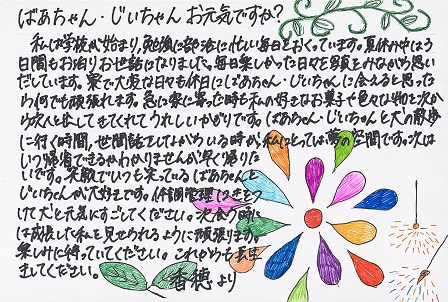 ばあちゃん・じいちゃん お元気ですか?
私は学校が始まり、勉強に部活に忙しい毎日をおくっています。夏休み中は5
日間もお泊りお世話になりました。毎日楽しかった日々を写真をみながら思い
だしています。寮で大変な日々も休日にばあちゃん・じいちゃんに会えると思った
ら何でも頑張れます。急に家に寄った時も私の好きなお菓子や色々な物を次か
ら次へと出してきてくれてうれしいかぎりです。ばあちゃん・じいちゃんと犬の散歩
に行く時間、世間話をしてよりがいる時が私にとっては夢の空間です。次は
いつ帰省できるかわかりませんが早く帰りた
いです。笑顔でいつも笑っているばあちゃんと
じいちゃんが大好きです。体調管理に気をつ
けて犬と元気にすごしてください。次会う時に
は成長した私を見せられるように頑張ります。
楽しみに待っていてください。これからも長生
きしてください。
香穂より